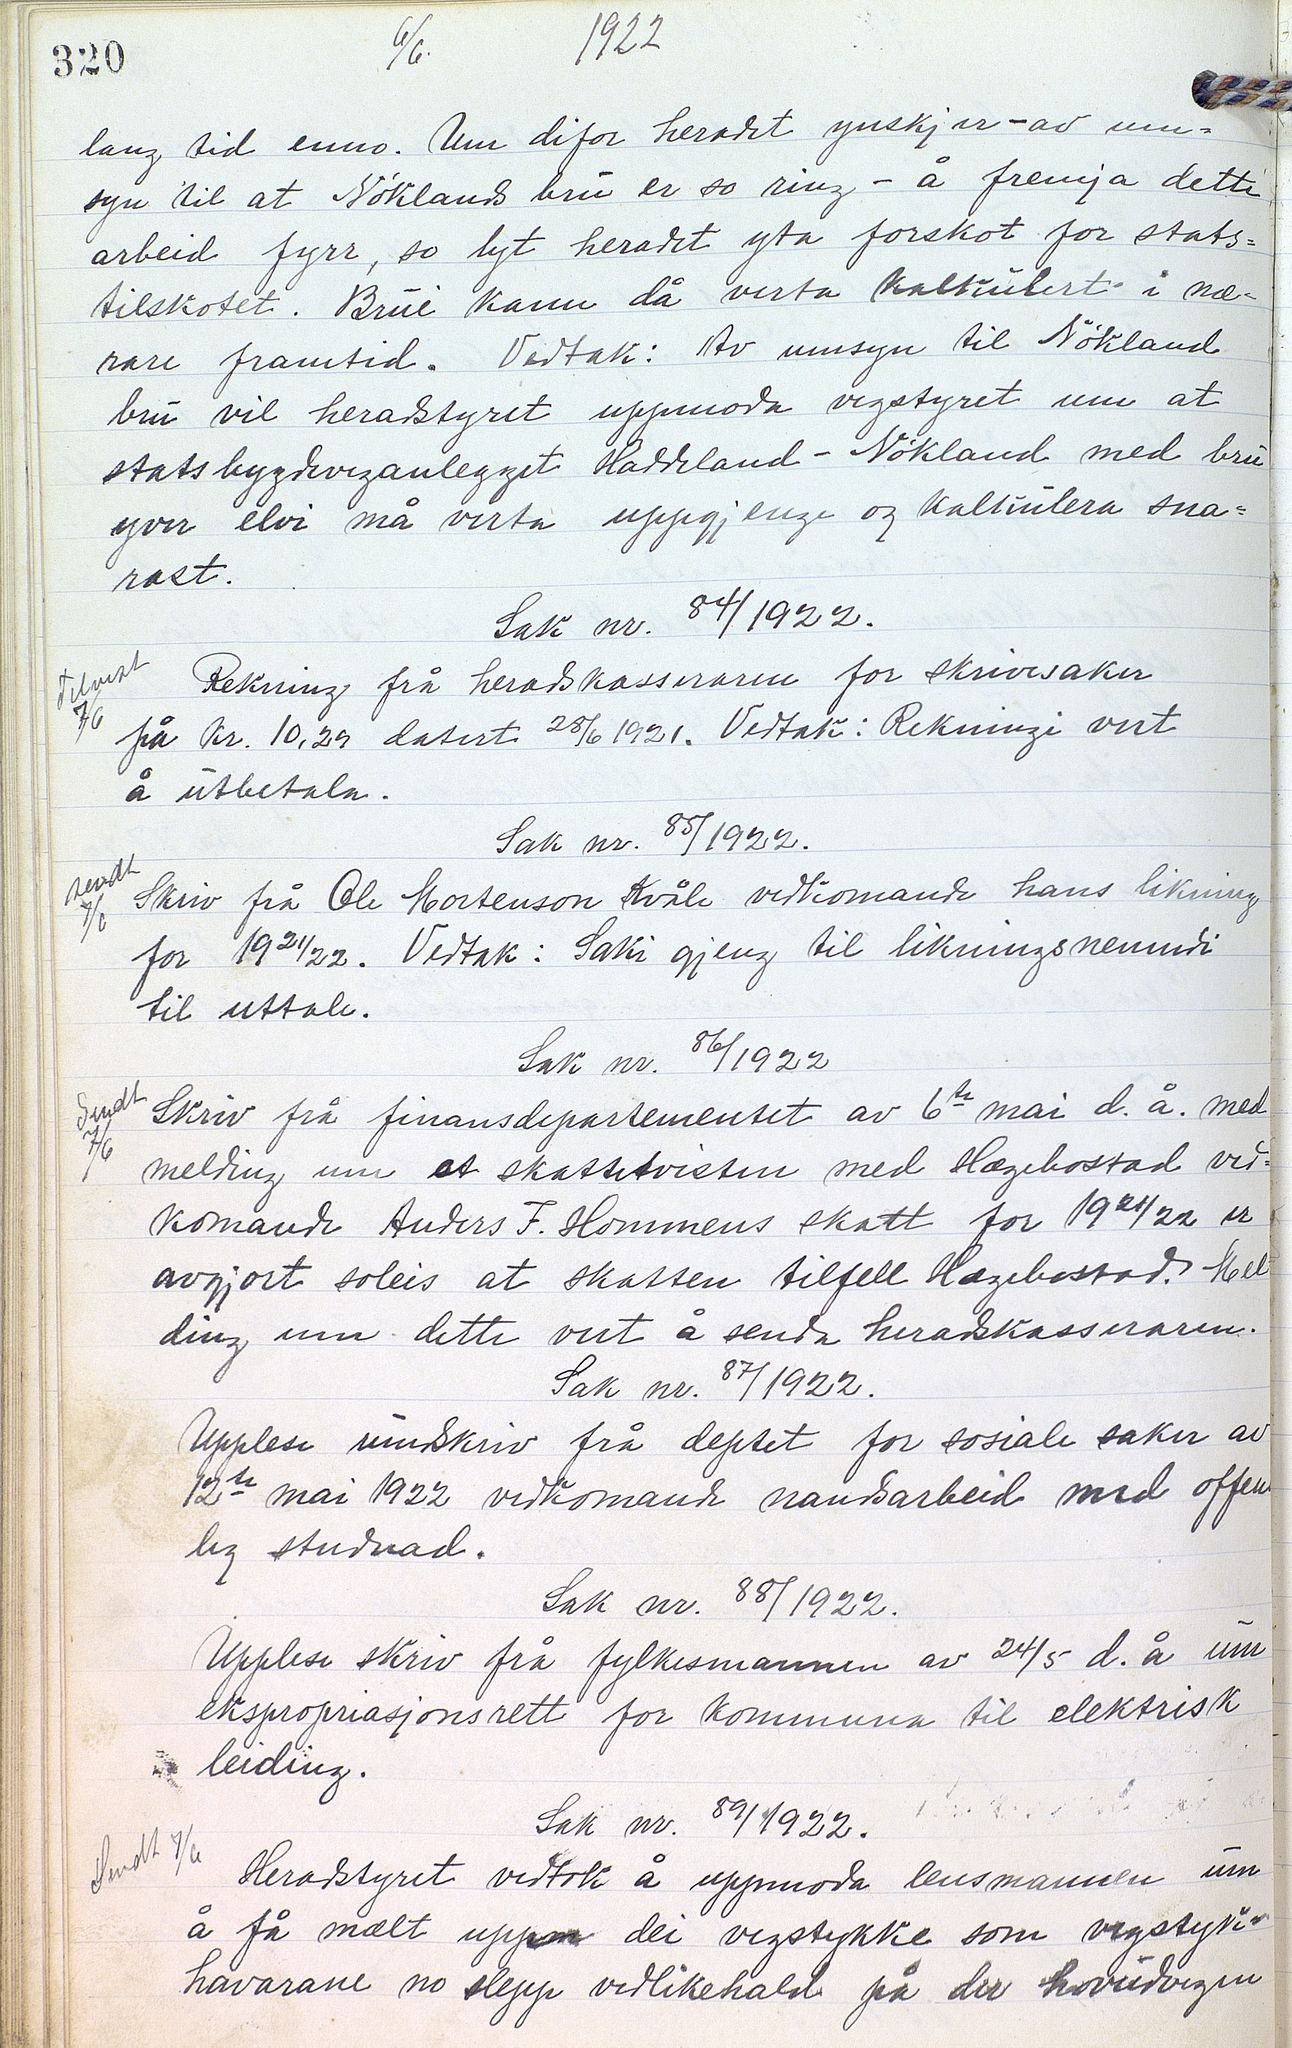 320 6/6. 1922
lang tid enno. Um difor heradet ynskjer - av um=
syn til at Nöklands bru er so ring - å fremja dette
arbeid fyrr, so lyt heradet yta forskot for stats=
tilskotet. Brui kann då verta kalkulert i næ=
rare framtid. Vedtak: Av umsyn til Nökland
bru vil heradstyret uppmoda vegstyret um at
statsbygdeveganlegget Haddeland - Nökland med bru
yver elvi må verta uppgjenge og kalkulera sna=
rast.
Sak nr. 84/1922.
Tilvist
7/6
Rekning frå heradskasseraren for skrivesaker
på kr. 10,29 datert 28/6 1921. Vedtak: Rekningi vert
å utbetala.
Sak nr. 85/1922.
sendt
7/6
Skriv frå Ole Mortenson Kvåle vedkomande hans likning
for 1921/22. Vedtak: Saki gjeng til likningsnemndi
til uttale.
Sak nr. 86/1922
Sendt
7/6
Skriv frå finansdepartementet av 6te mai d. å. med
melding um at skattetvisten med Hægebostad ved=
komande Anders F. Hommens skatt for 1921/22 er
avgjort soleis at skatten tilfell Hægebostad. Mel
ding um dette vert å senda heradskasseraren.
Sak nr. 87/1922.
Upplese umdskriv frå deptet for sosiale saker av
12te mai 1922 vedkomande naudsarbeid med offen
leg studnad.
Sak nr. 88/1922.
Upplese skriv frå fylkesmannen av 24/5 d. å um
ekspropriasjonsrett for kommuna til elektrisk
leiding.
Sak nr. 89/1922.
Sendt 7/6
Heradstyret vedtok å uppmoda lensmannen um
å få mælt upp dei vegstykke som vegstyk=
havarane no slepp vedlikehald på der hovudvegen